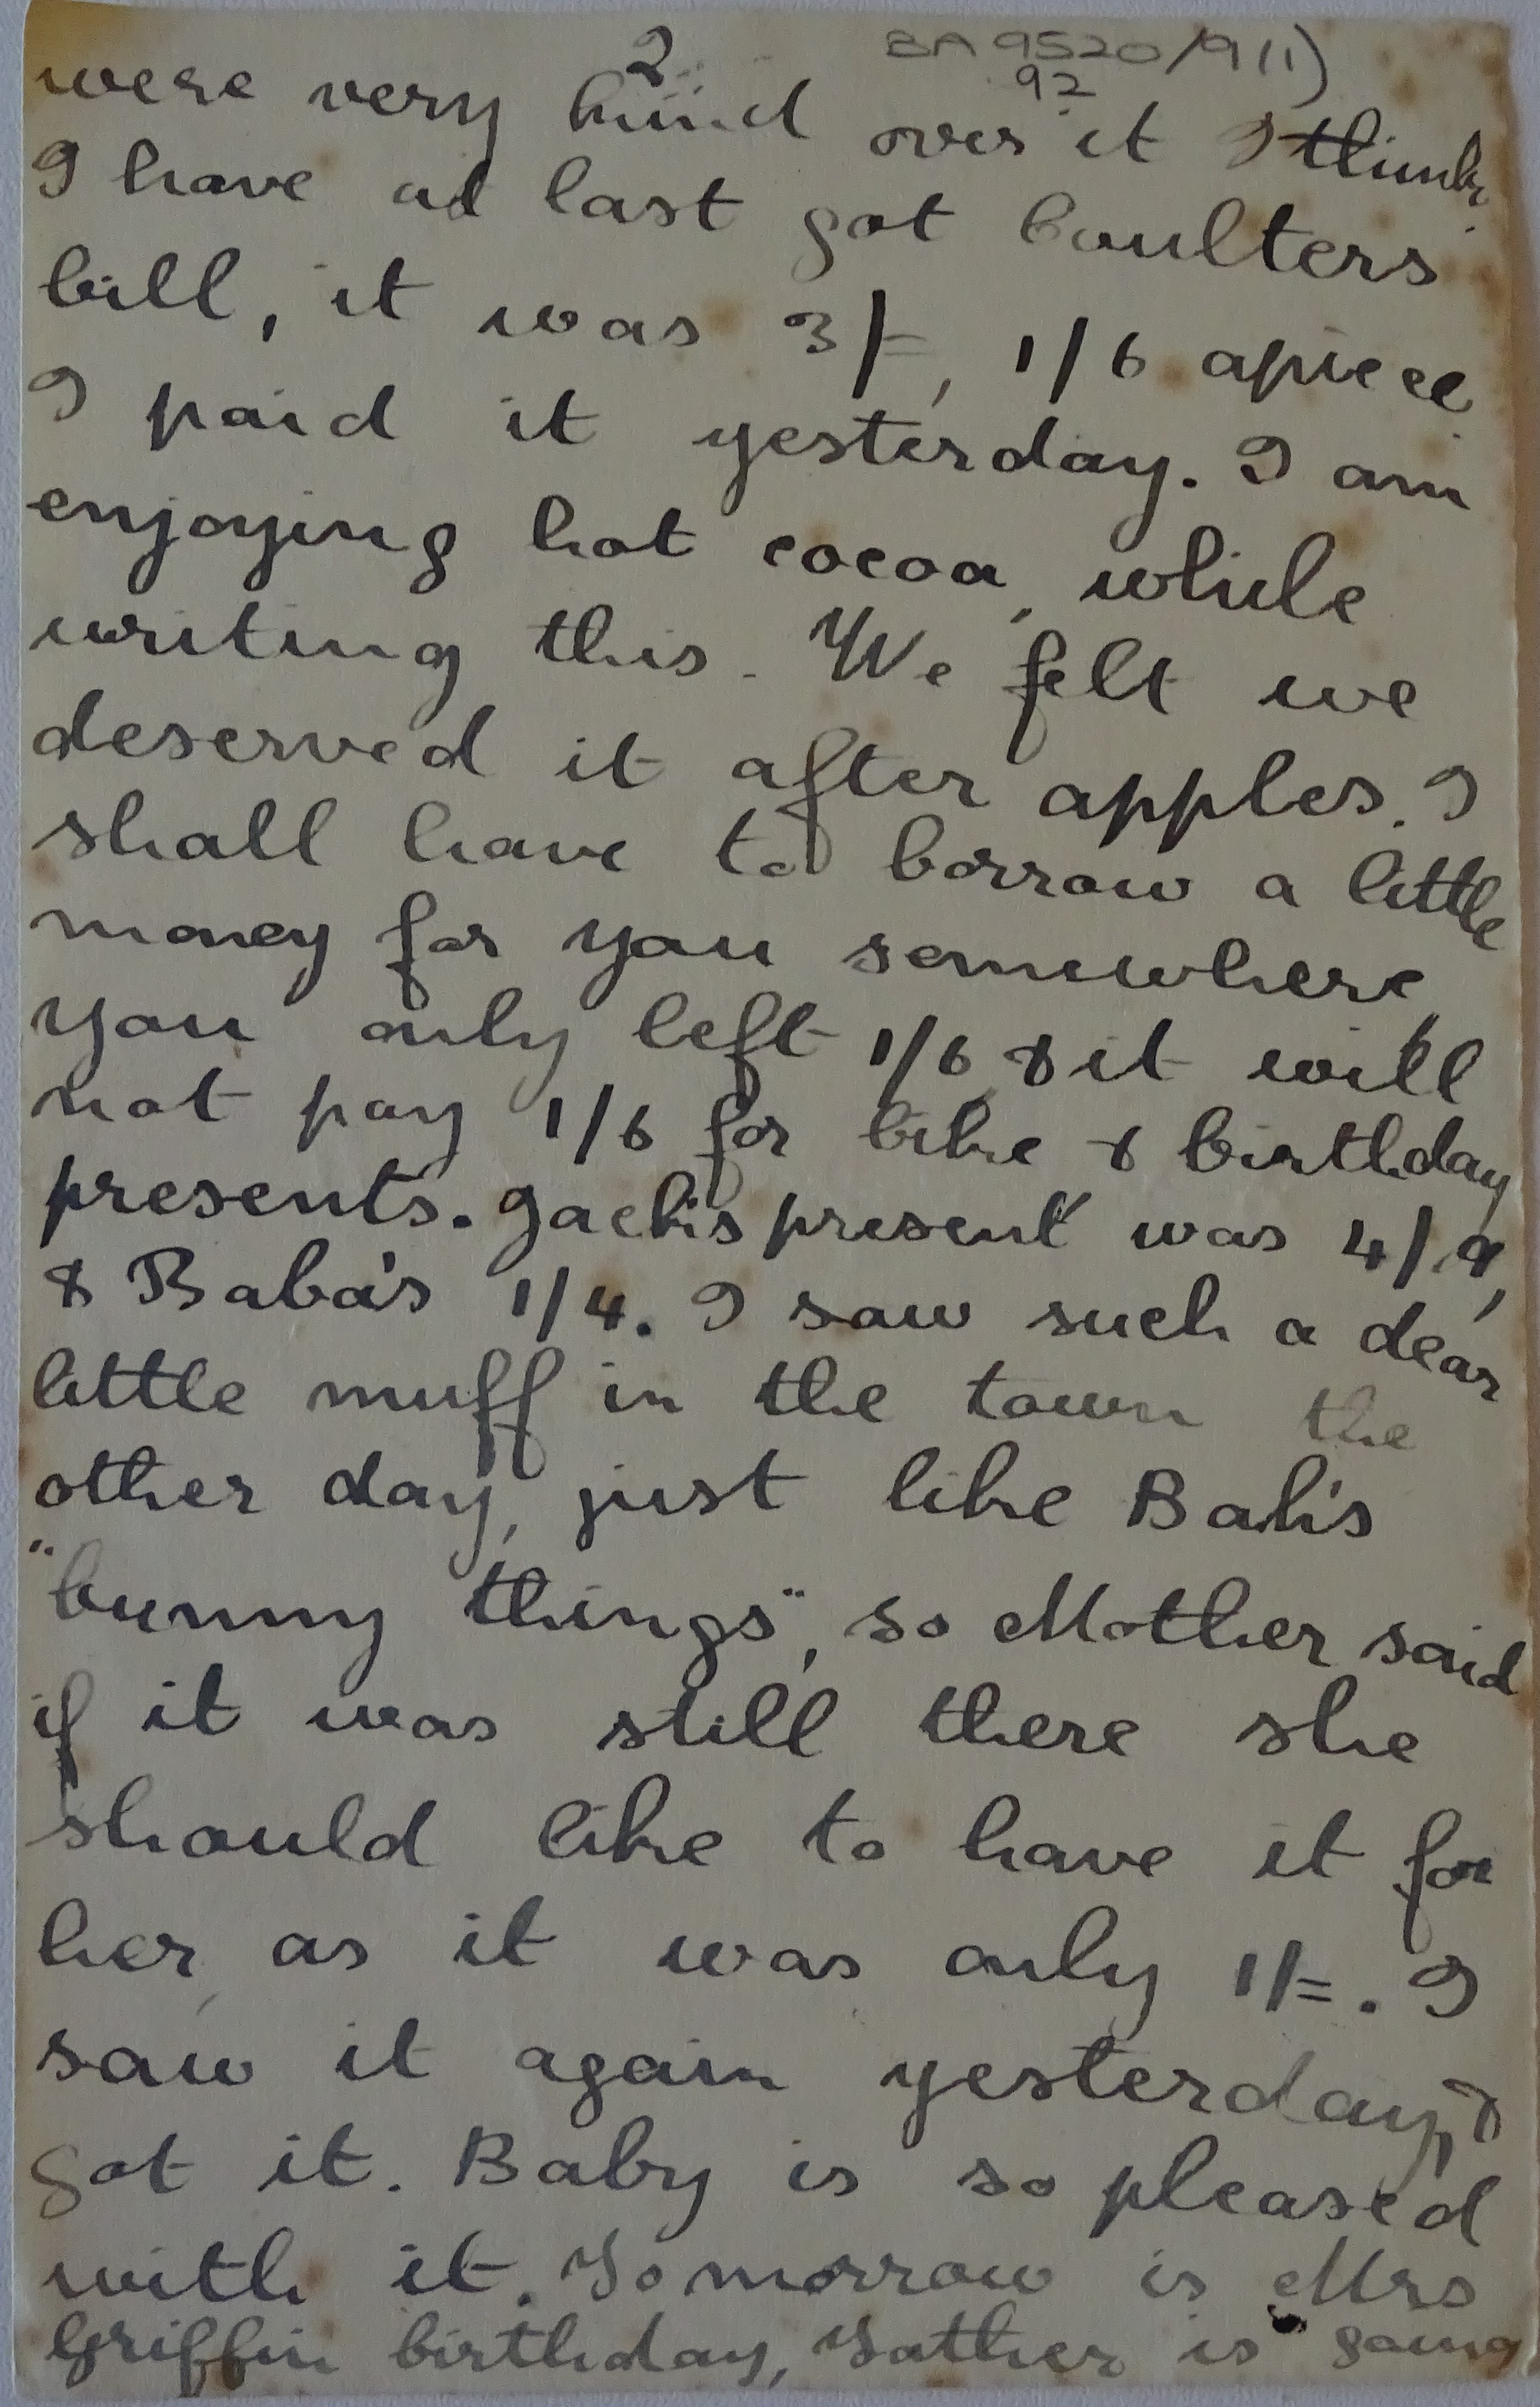 2
BA 9520/9(1)
92
were very kind over it I think
I have at last got Coulters
bill, it was 3/=, 1/6 apiece
I paid it yesterday. I am
enjoying hot cocoa, while
writing this. We felt we
deserved it after apples. I
shall have to borrow a little
money for you somewhere,
you only left 1/6 & it will
not pay 1/6 for bike & birthday
presents. Jack's present was 4/9,
& Baba's 1/4. I saw such a dear
little muff in the town the
other day, just like Bab's
"bunny things", so Mother said
if it was still there she
should like to have it for
her, as it was only 1/=. I
saw it again yesterday, &
got it. Baby is so pleased
with it. Tomorrow is Mrs
Griffin birthday, Father is going